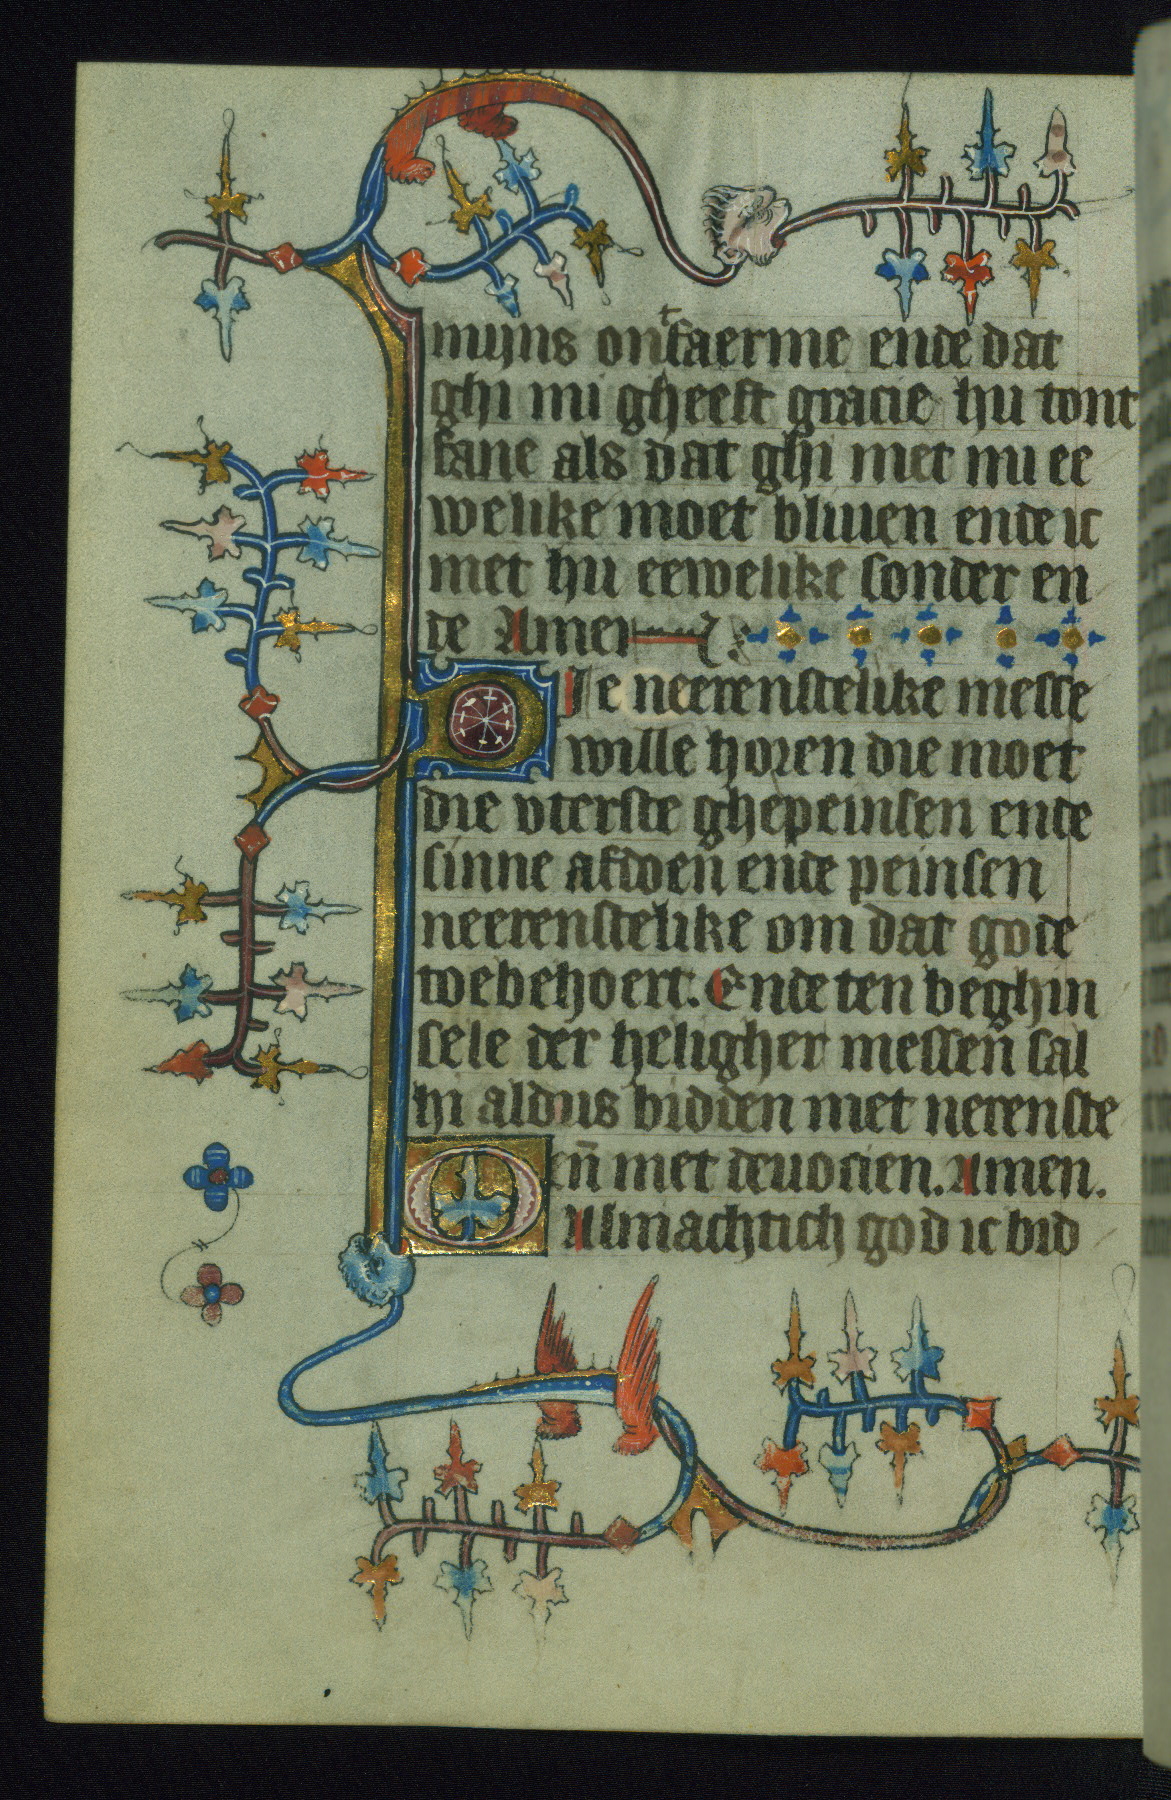 myns ontfaerme ende dat
ghi mi gheeft gracie hu tont
fane als dat ghi met mi ee
welike moet bliuen ende ic
met hu eewelike sonder en
de Amen
Die neerenstelike messe
wille horen die moet
die vterste ghepeinsen ende
sinne afdoen ende peinsen
neerenstelike om dat gode
toebehoert. Ende ten beghin
sele der heligher messen sal
hi aldus bidden met nerenste
en̄ met deuocien. Amen.
Almachtich god ic bid